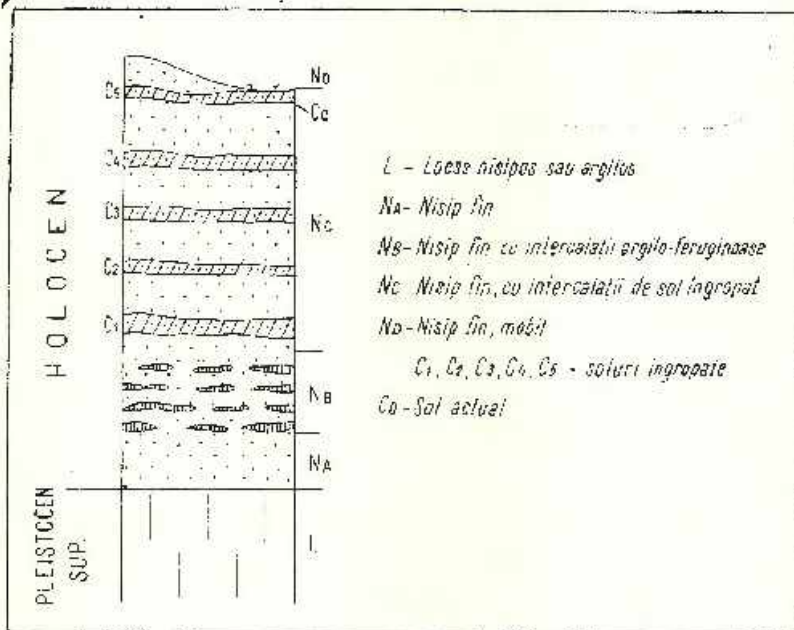 ND
C5
Cα
C4
C3
NC
C2
C1
HOLOCEN
NB
NA
PLEISTOCEN
SUP.
L
L - Loess nisipos sau argilos
NA- Nisip fin
NB- Nisip fin cu intercalatii argilo-feruginoase
NC- Nisip fin, cu intercalatii de sol ingropat
ND- Nisip fin, mobil
C1, C2, C3, C4, C5 - soluri ingropate
Cα- Sol actual